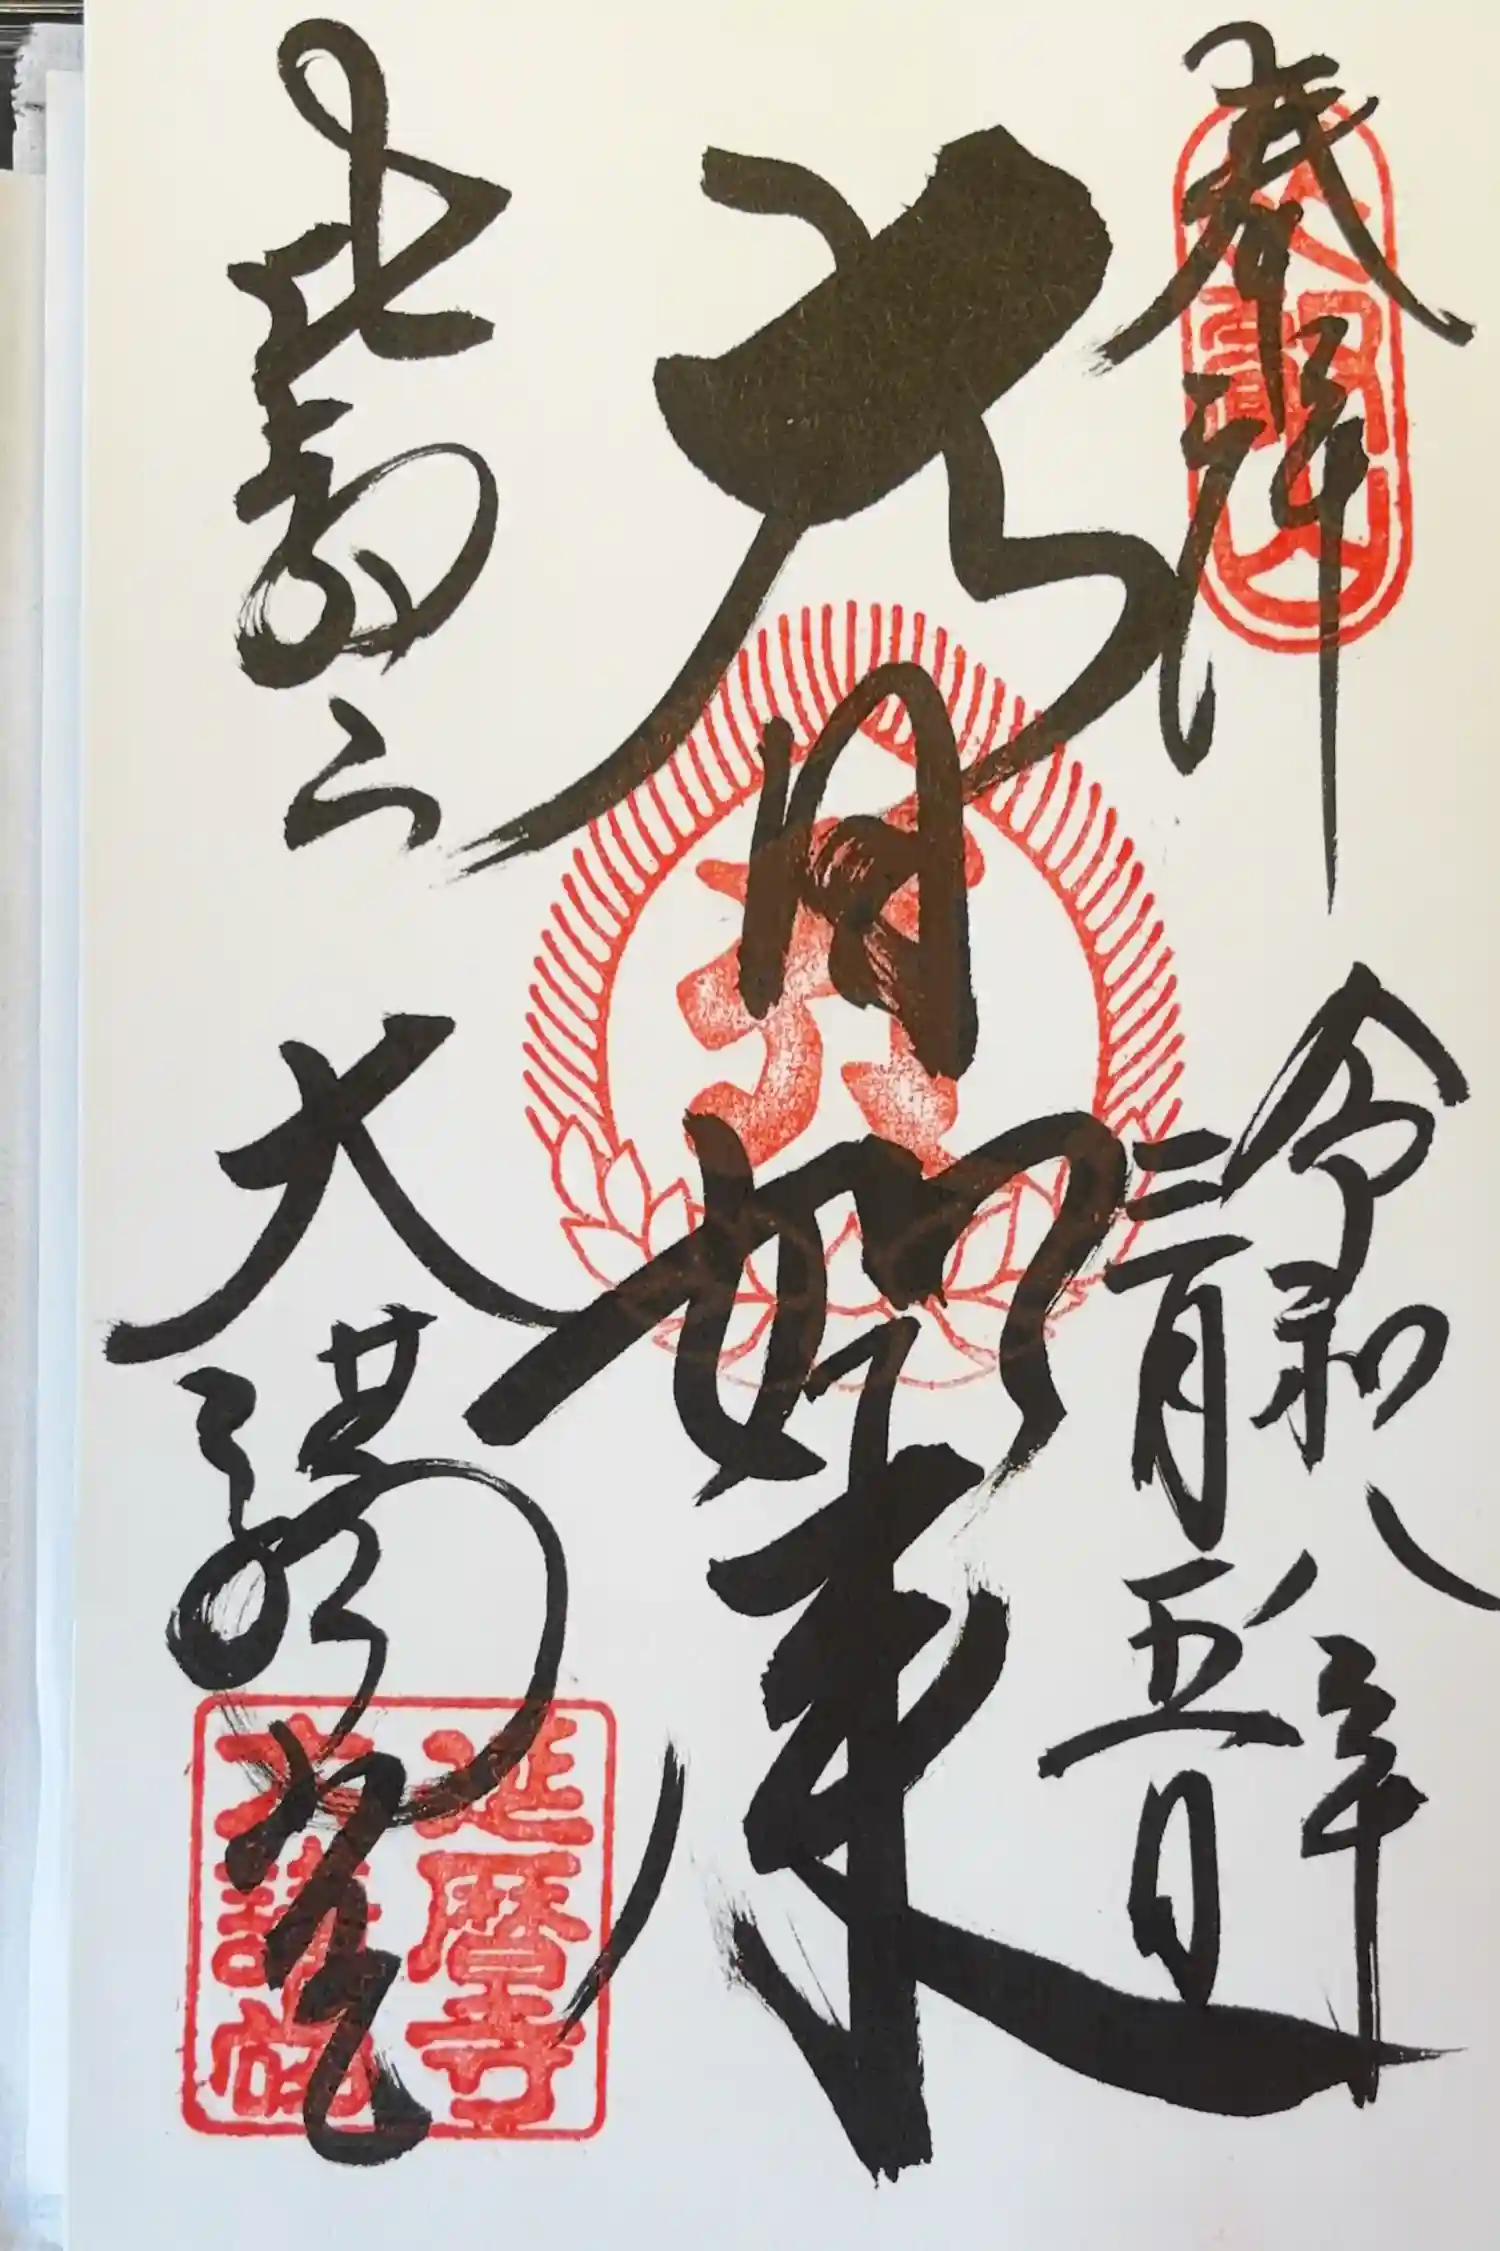 奉拝
令和八年
三月五日
大日如来
比叡山
大講堂
延暦寺
大講堂